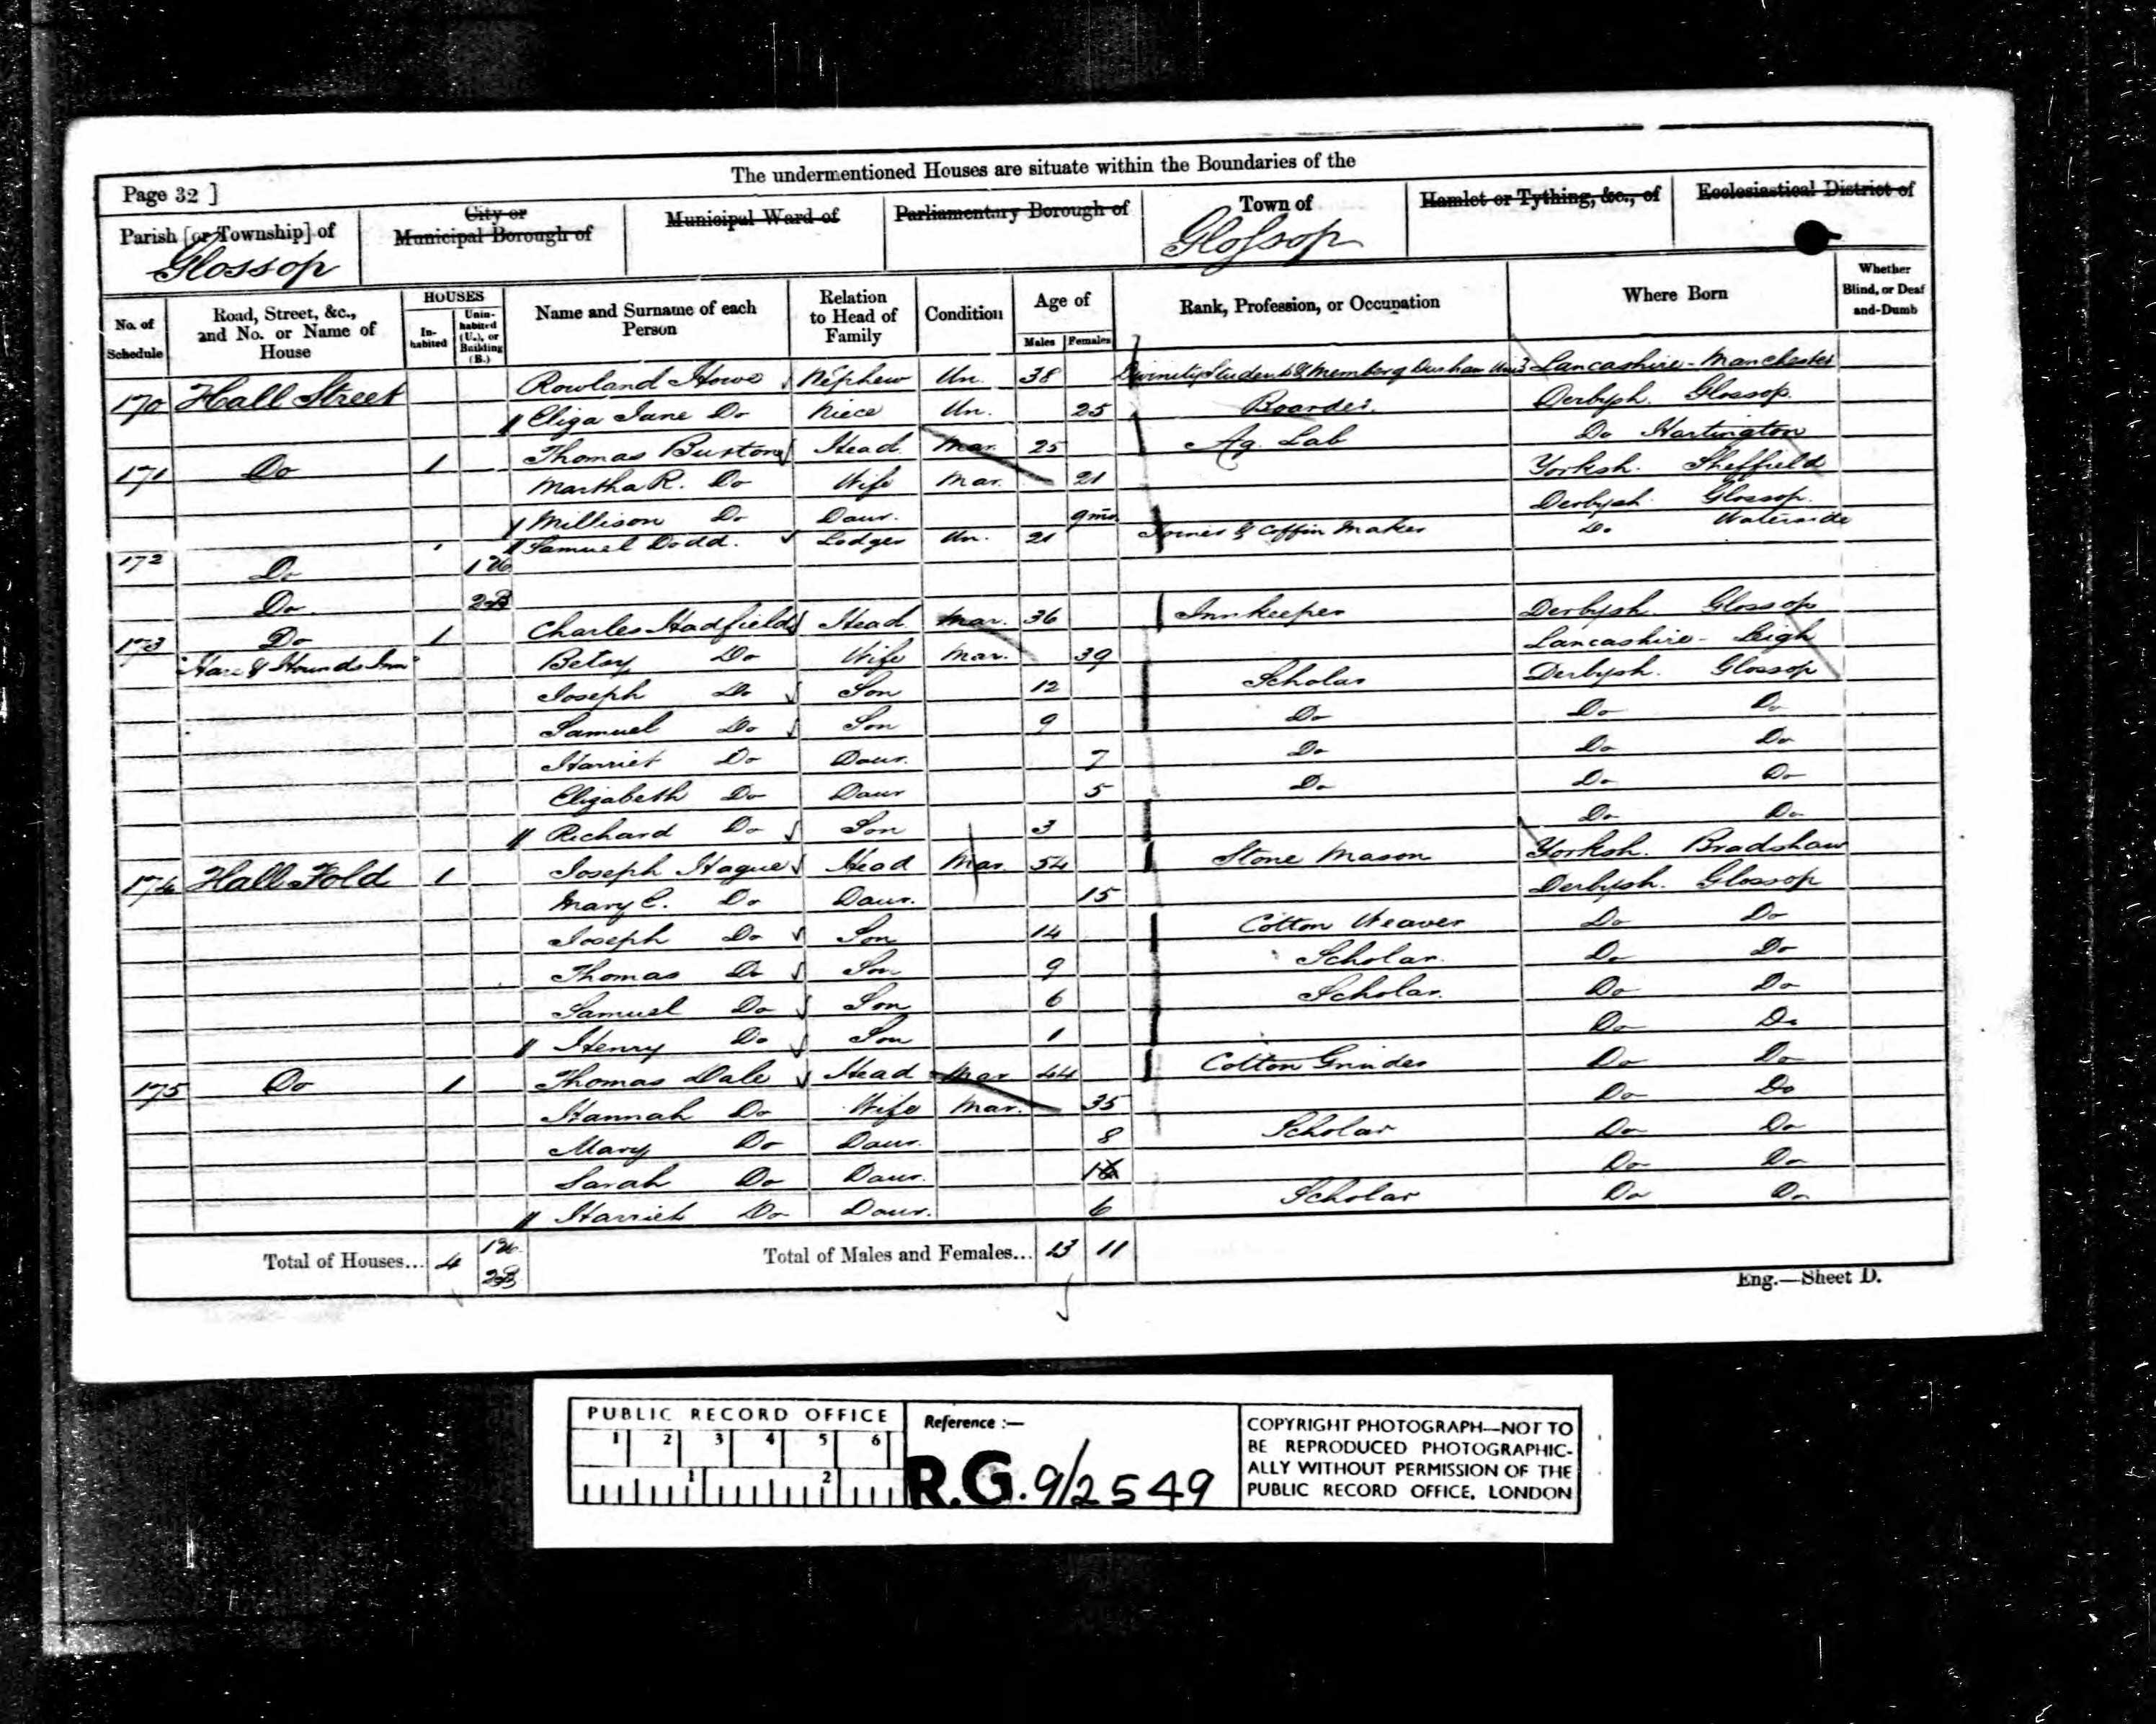 The undermentioned Houses are situate within the Boundaries of the
Page 32 ]
Parish [or Township] of
Glossop
City or
Municipal Borough of
Municipal Ward of
Parliamentary Borough of
Town of
Glossop
Hamlet or Tything, &c., of
Ecclesiastical District of
No. of Schedule
Road, Street, &c., and No. or Name of House
HOUSES
In-habited
Unin-habited (U.), or Building (B.)
Name and Surname of each Person
Relation to Head of Family
Condition
Age of
Males Females
Rank, Profession, or Occupation
Where Born
Whether Blind, or Deaf and-Dumb
170 Hall Street Rowland Howe Nephew Un. 38 Divinity Student & Member of Durham Lancashire - Manchester
Eliza Jane Do Niece Un. 25 Boarder. Derbysh. Glossop.
171 Do 1 Thomas Burton Head Mar. 25 Ag. Lab Do Hartington
Martha R. Do Wife Mar. 21 Yorksh. Sheffield
Millison Do Daur. 9 mo Derbysh. Glossop.
172 Samuel Dodd. Lodger Un. 21 Joiner & Coffin Maker Do Waterside
Do 1 U
Do. 2 B
173 Do 1 Charles Hadfield Head Mar. 36 Innkeeper Derbysh. Glossop
"Hare & Hounds Inn" Betsy Do Wife Mar. 39 Lancashire - Leigh
Joseph Do Son 12 Scholar Derbysh. Glossop
Samuel Do Son 9 Do Do Do
Harriet Do Daur. 7 Do Do Do
Elizabeth Do Daur 5 Do Do Do
Richard Do Son 3 Do Do
174 Hall Fold 1 Joseph Hague Head Mar. 54 Stone Mason Yorksh. Bradshaw
Mary E. Do Daur. 15 Derbysh. Glossop
Joseph Do Son 14 Cotton Weaver Do Do
Thomas Do Son 9 Scholar. Do Do
Samuel Do Son 6 Scholar. Do Do
Henry Do Son 1 Do Do
175 Do 1 Thomas Dale Head Mar 44 Cotton Grinder Do Do
Hannah Do Wife Mar. 35 Do Do
Mary Do Daur. 8 Scholar Do Do
Sarah Do Daur. Do Do
Harriet Do Daur. 6 Scholar Do Do
Total of Houses... 4 1 U. 2 B
Total of Males and Females... 13 11
Eng.—Sheet D.
PUBLIC RECORD OFFICE
1 2 3 4 5 6
1 2
Reference :—
R.G. 9/2549
COPYRIGHT PHOTOGRAPH—NOT TO
BE REPRODUCED PHOTOGRAPHIC-
ALLY WITHOUT PERMISSION OF THE
PUBLIC RECORD OFFICE, LONDON